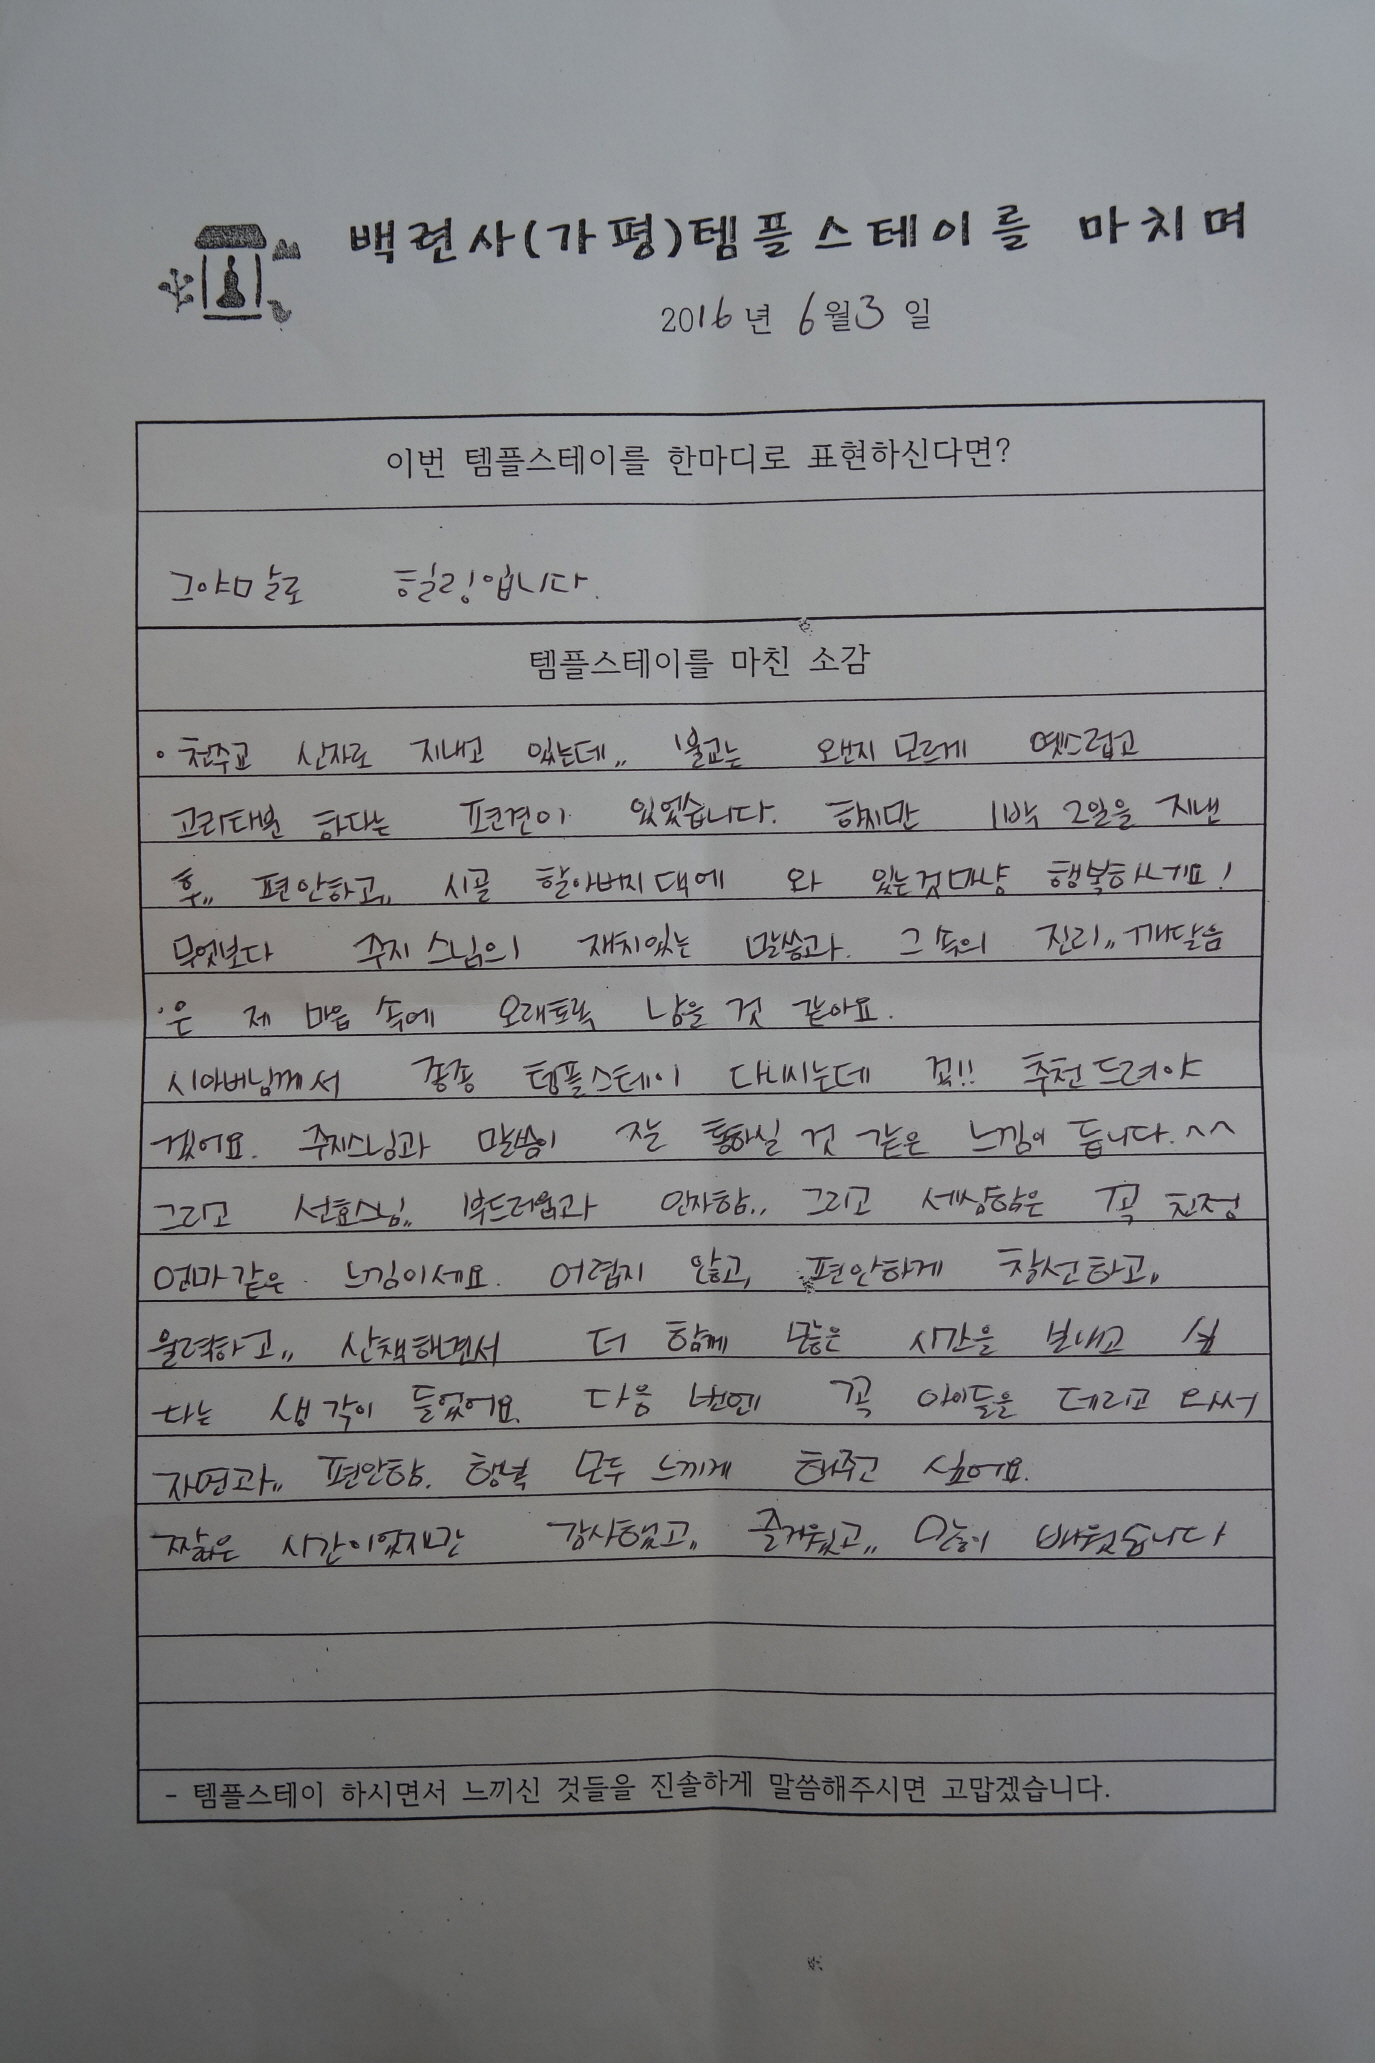 백련사(가평)템플스테이를 마치며
2016년 6월3일
이번 템플스테이를 한마디로 표현하신다면?
그야말로 힐링입니다.
템플스테이를 마친 소감
천주교 신자로 지내고 있는데,, 불교는 왠지 모르게 옛스럽고
고리타분 하다는 편견이 있었습니다. 하지만 1박 2일을 지낸
후,, 편안하고,, 시골 할아버지댁에 와 있는것마냥 행복하네요!
무엇보다 주지스님의 재치있는 말씀과. 그 속의 진리,, 깨달음
은 제 마음 속에 오래토록 남을 것 같아요.
시아버님께서 종종 템플스테이 다니시는데 꼭!! 추천드려야
겠어요. 주지스님과 말씀이 잘 통하실 것 같은 느낌이 듭니다.^^
그리고 선효스님,, 부드러움과 인자함,, 그리고 세상함은 꼭 친정
엄마같은 느낌이세요. 어렵지 않고, 편안하게 참선하고,,
울력하고,, 산책하면서 더 함께 많은 시간을 보내고 싶
다는 생각이 들었어요. 다음 번엔 꼭 아이들을 데리고 와서
자연과,, 편안함, 행복 모두 느끼게 해주고 싶어요.
짧은 시간이었지만 감사했고,, 즐거웠고,, 많이 배웠습니다
- 템플스테이 하시면서 느끼신 것들을 진솔하게 말씀해주시면 고맙겠습니다.